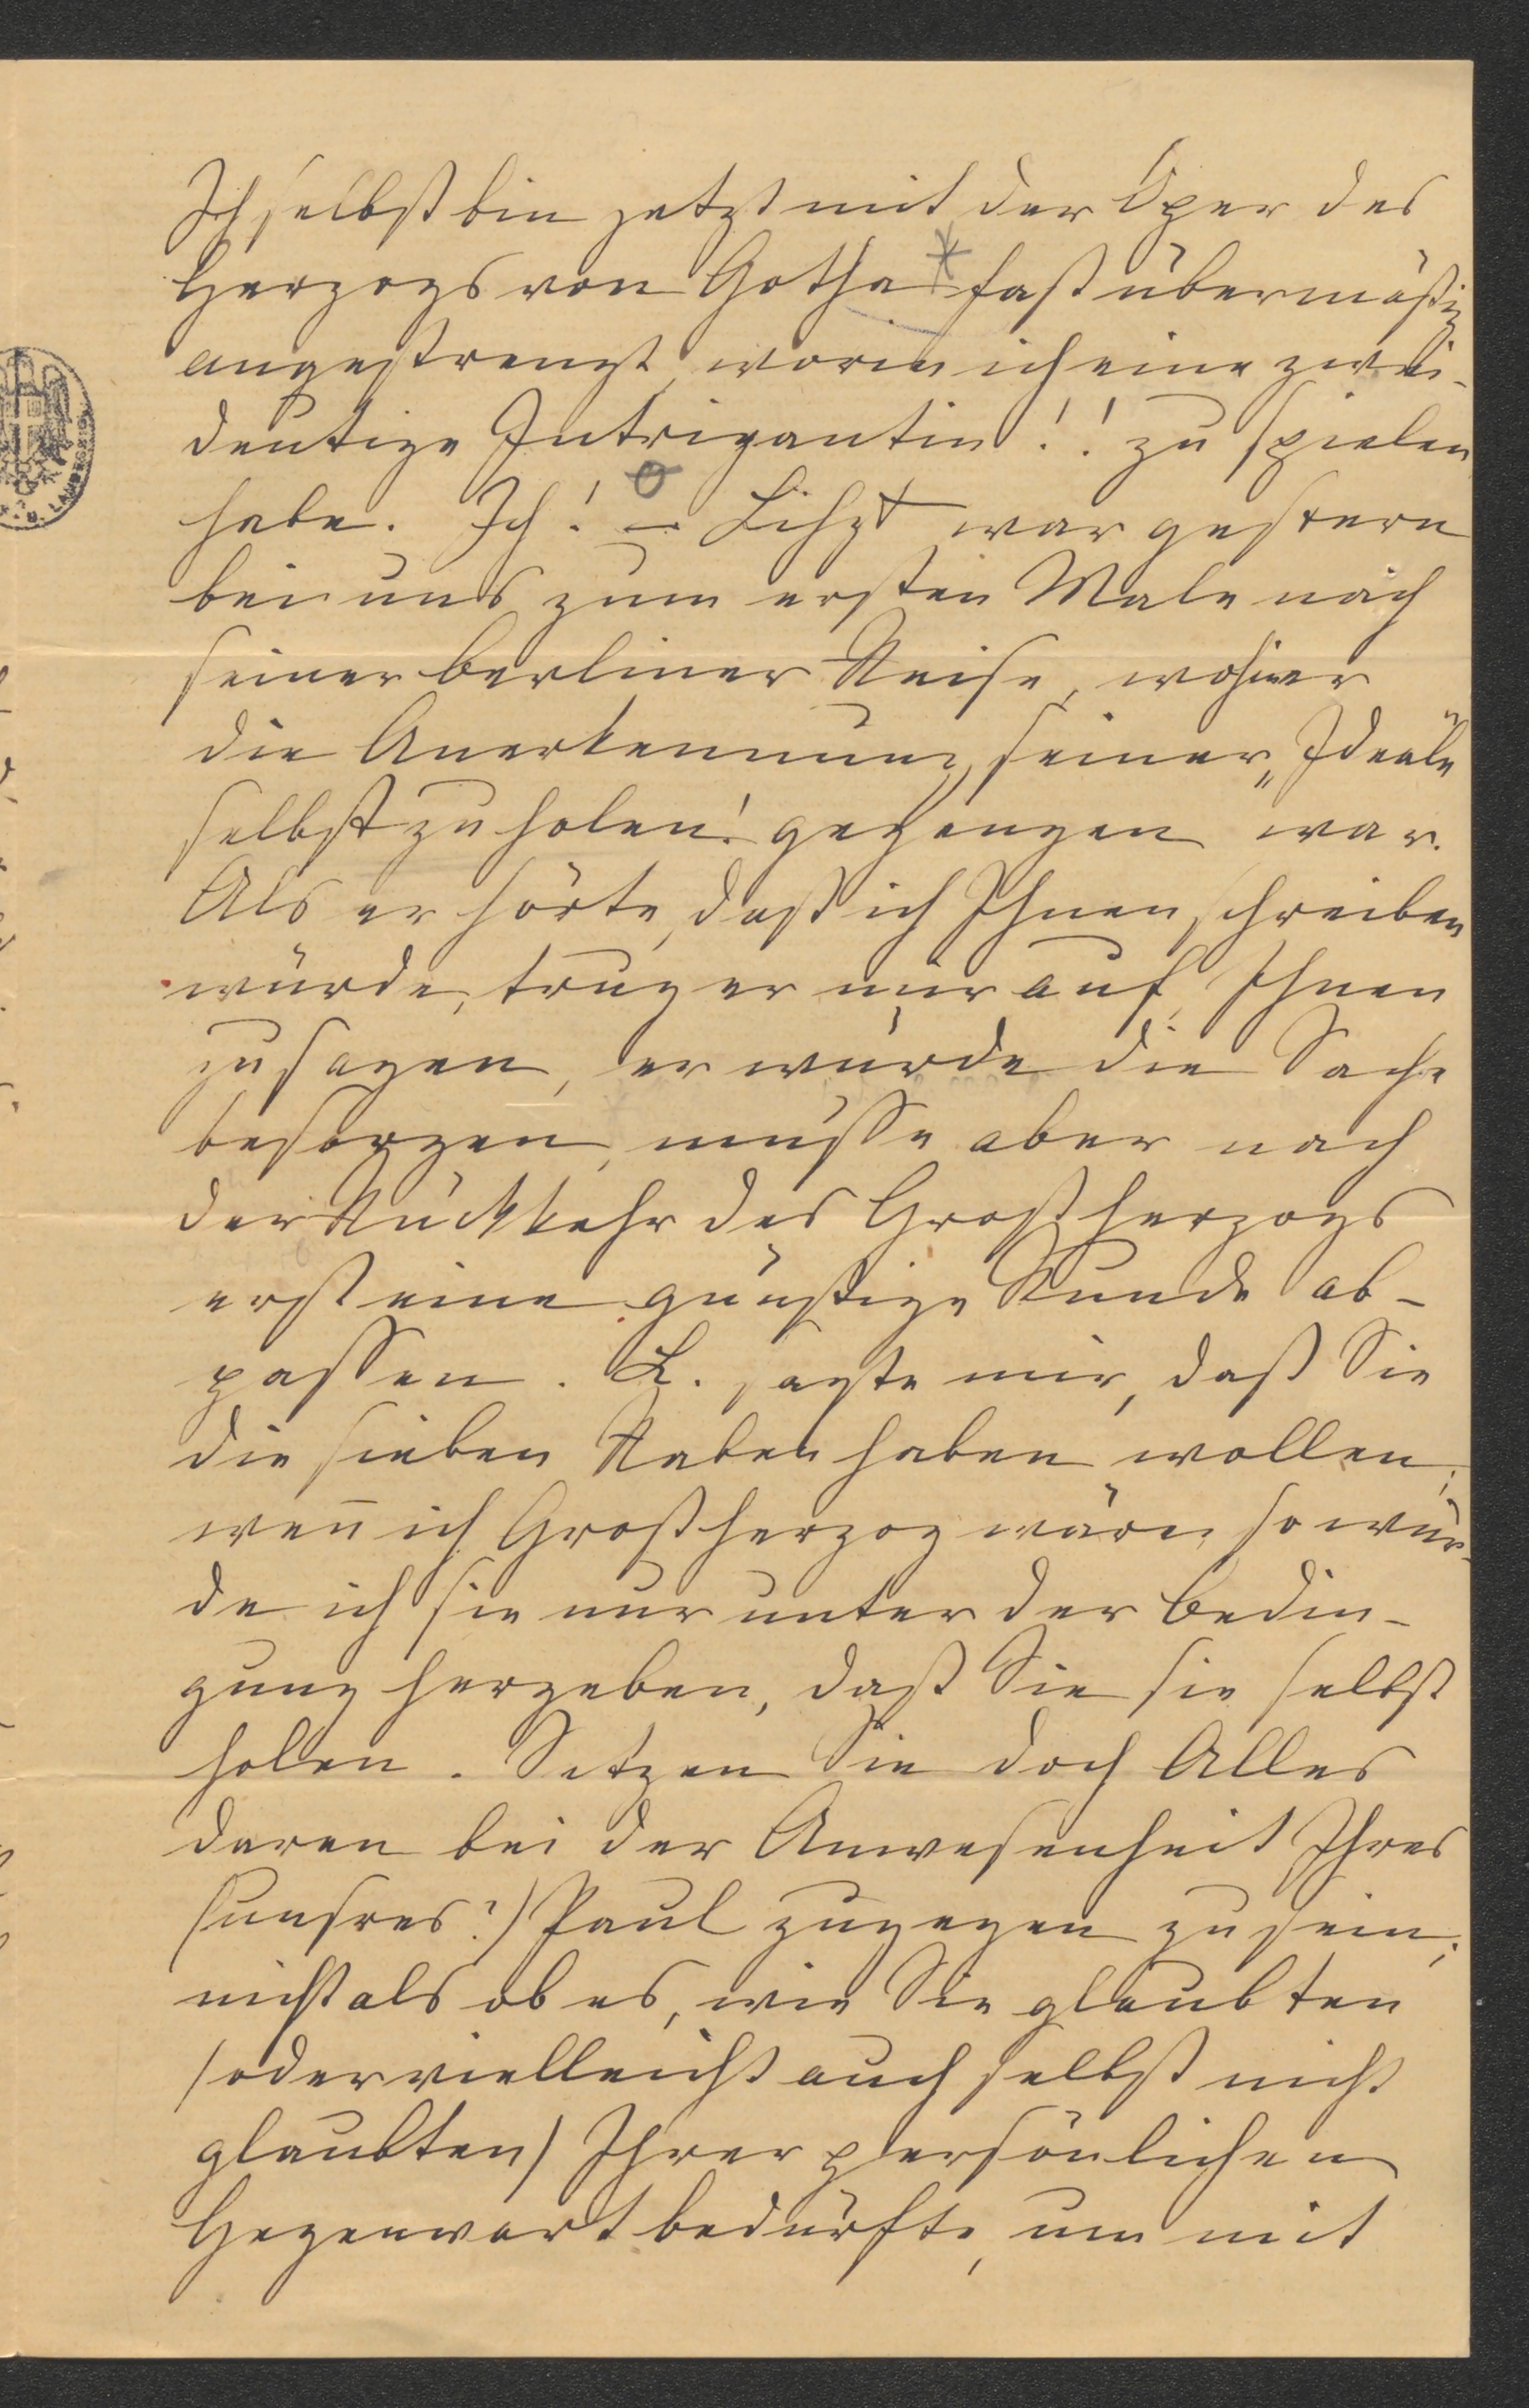 Ich selbst bin jetzt mit der Oper des
Herzogs von Gotha * fast übermäßig
angestrengt, worin ich eine zwei-
deutige Intrigantin!! zu spielen
habe. Ich! – Lißzt war gestern
bei uns zum ersten Male nach
seiner berliner Reise, wohin er
die Anerkennung seiner „Ideale"
selbst zu holen! gegangen war.
Als er hörte, daß ich Ihnen schreiben
würde, trug er mir auf, Ihnen
zu sagen, er würde die Sache
besorgen, müsse aber nach
der Rückkehr des Großherzogs
erst eine günstige Stunde ab-
passen. L. sagte mir, daß Sie
die sieben Raben haben wollen;
wenn ich Großherzog wäre, so wür-
de ich sie nur unter der Bedin-
gung hergeben, daß Sie sie selbst
holen. Setzen Sie doch Alles
daran bei der Anwesenheit Ihres
(unsres?) Paul zugegen zu sein;
nicht als ob es, wie Sie glaubten
(oder vielleicht auch selbst nicht
glaubten) Ihrer persönlichen
Gegenwart bedürfte, um mit